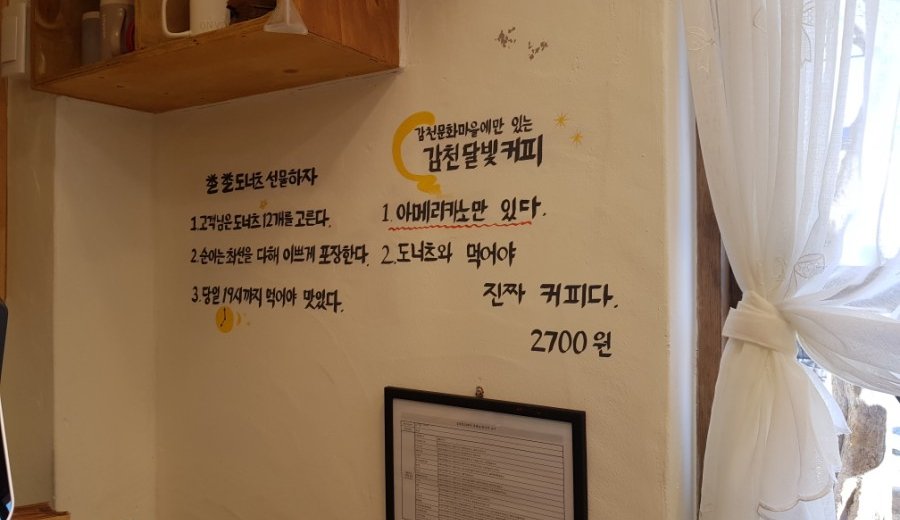 쫄쫄 도너츠 선물하자
1. 고객님은 도너츠 12개를 고른다.
2. 순이는 최선을 다해 이쁘게 포장한다.
3. 당일 19시까지 먹어야 맛있다.
감천문화마을에만 있는
감천달빛커피
1. 아메리카노만 있다.
2. 도너츠와 먹어야
진짜 커피다.
2700원